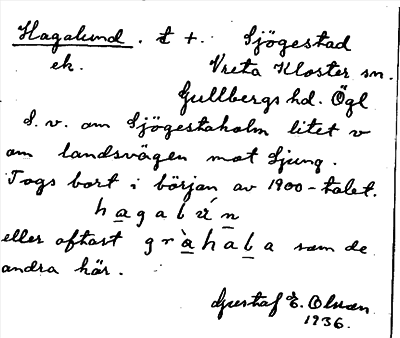 Hagalund. t +. Sjögestad
ek. Vreta Kloster sn.
Gullbergs hd. Ögl
S. v. om Sjögestaholm litet v
om landsvägen mot Ljung.
Togs bort i början av 1900-talet.
hagalún
eller oftast gràhala som de
andra här.
Gustaf E. Olsson
1936.